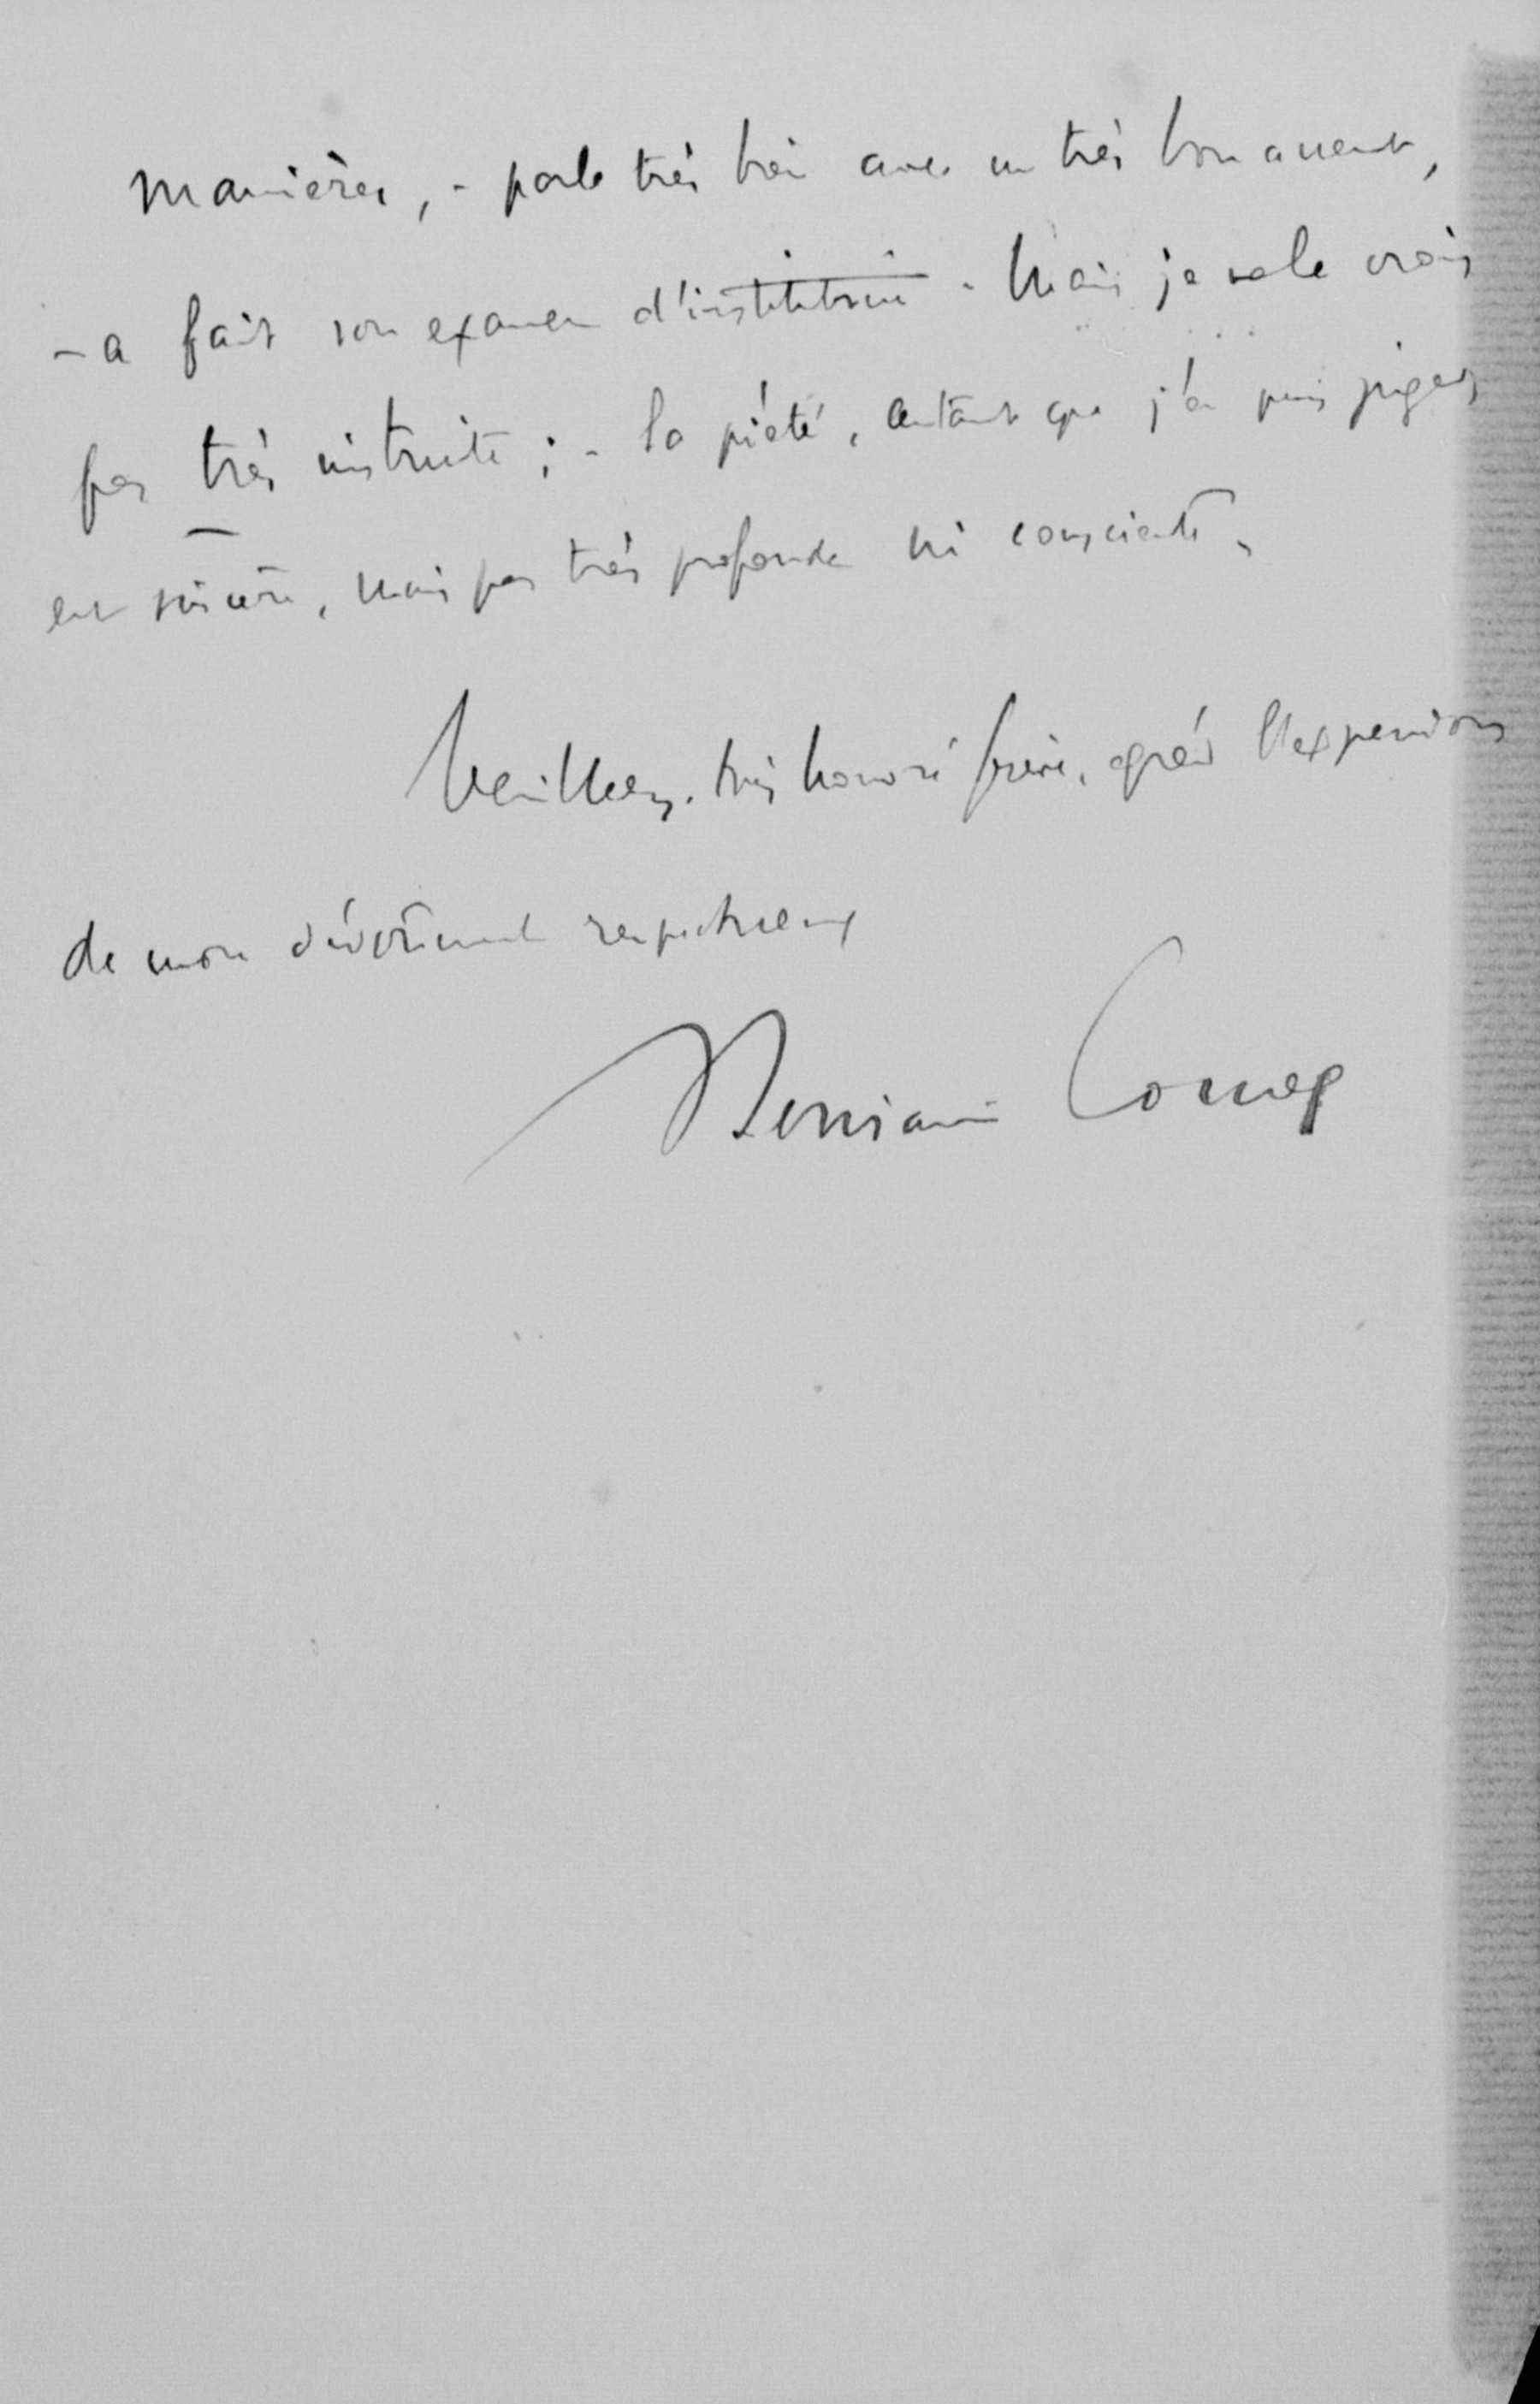 manières, - parle très bien avec un très bon accent,
- a fait son examen d'institutrice - Mais je ne la crois
pas très instruite ; - la piété, autant que j'en puis juger,
est sincère, mais pas très profonde ni consciente.
Veuillez, très honoré frère, agréer l'expression
de mon dévouement respectueux
Benjamin Couve